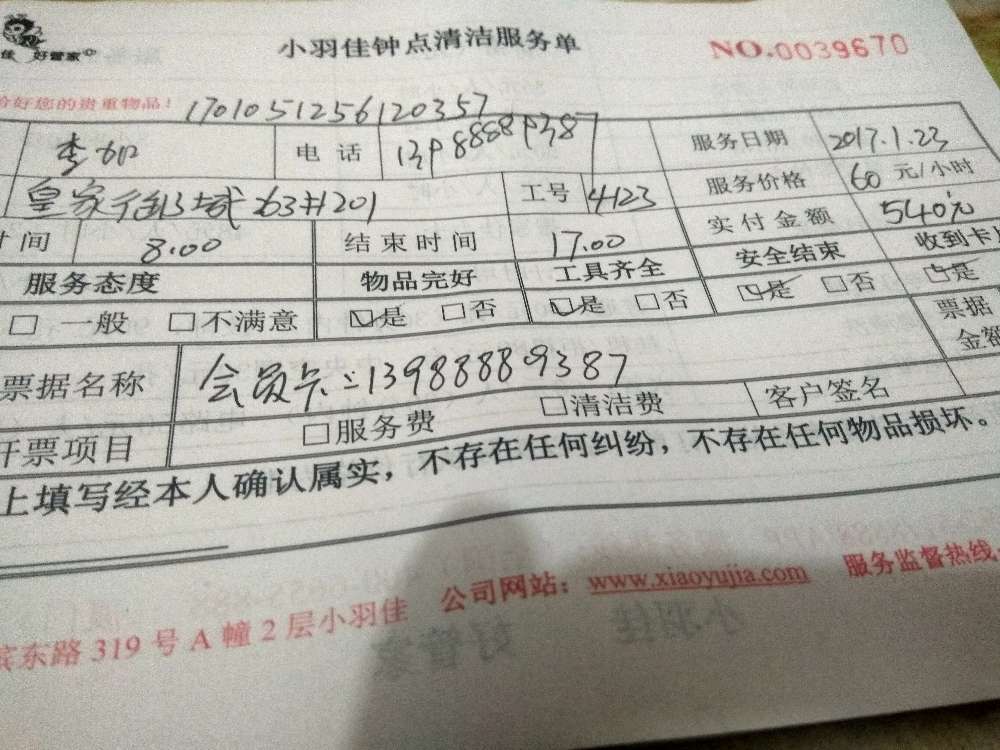 小羽佳钟点清洁服务单 NO.0039670
佳 好管家
好您的贵重物品! 1701051256120357
李如 电话 13988889387 服务日期 2017.1.23
皇家 63#201 工号 4123 服务价格 60 元/小时
时间 8:00 结束时间 17:00 实付金额 540元
服务态度 物品完好 工具齐全 安全结束 收到卡片
□ 一般 □不满意 ☑是 □否 ☑是 □否 ☑是 □否 ☑是
票据名称 会员卡:13988889387 票据金额
开票项目 □服务费 □清洁费 客户签名
上填写经本人确认属实,不存在任何纠纷,不存在任何物品损坏。
滨东路 319 号 A 幢 2 层小羽佳 公司网站:www.xiaoyujia.com 服务监督热线:
小羽佳
好管家